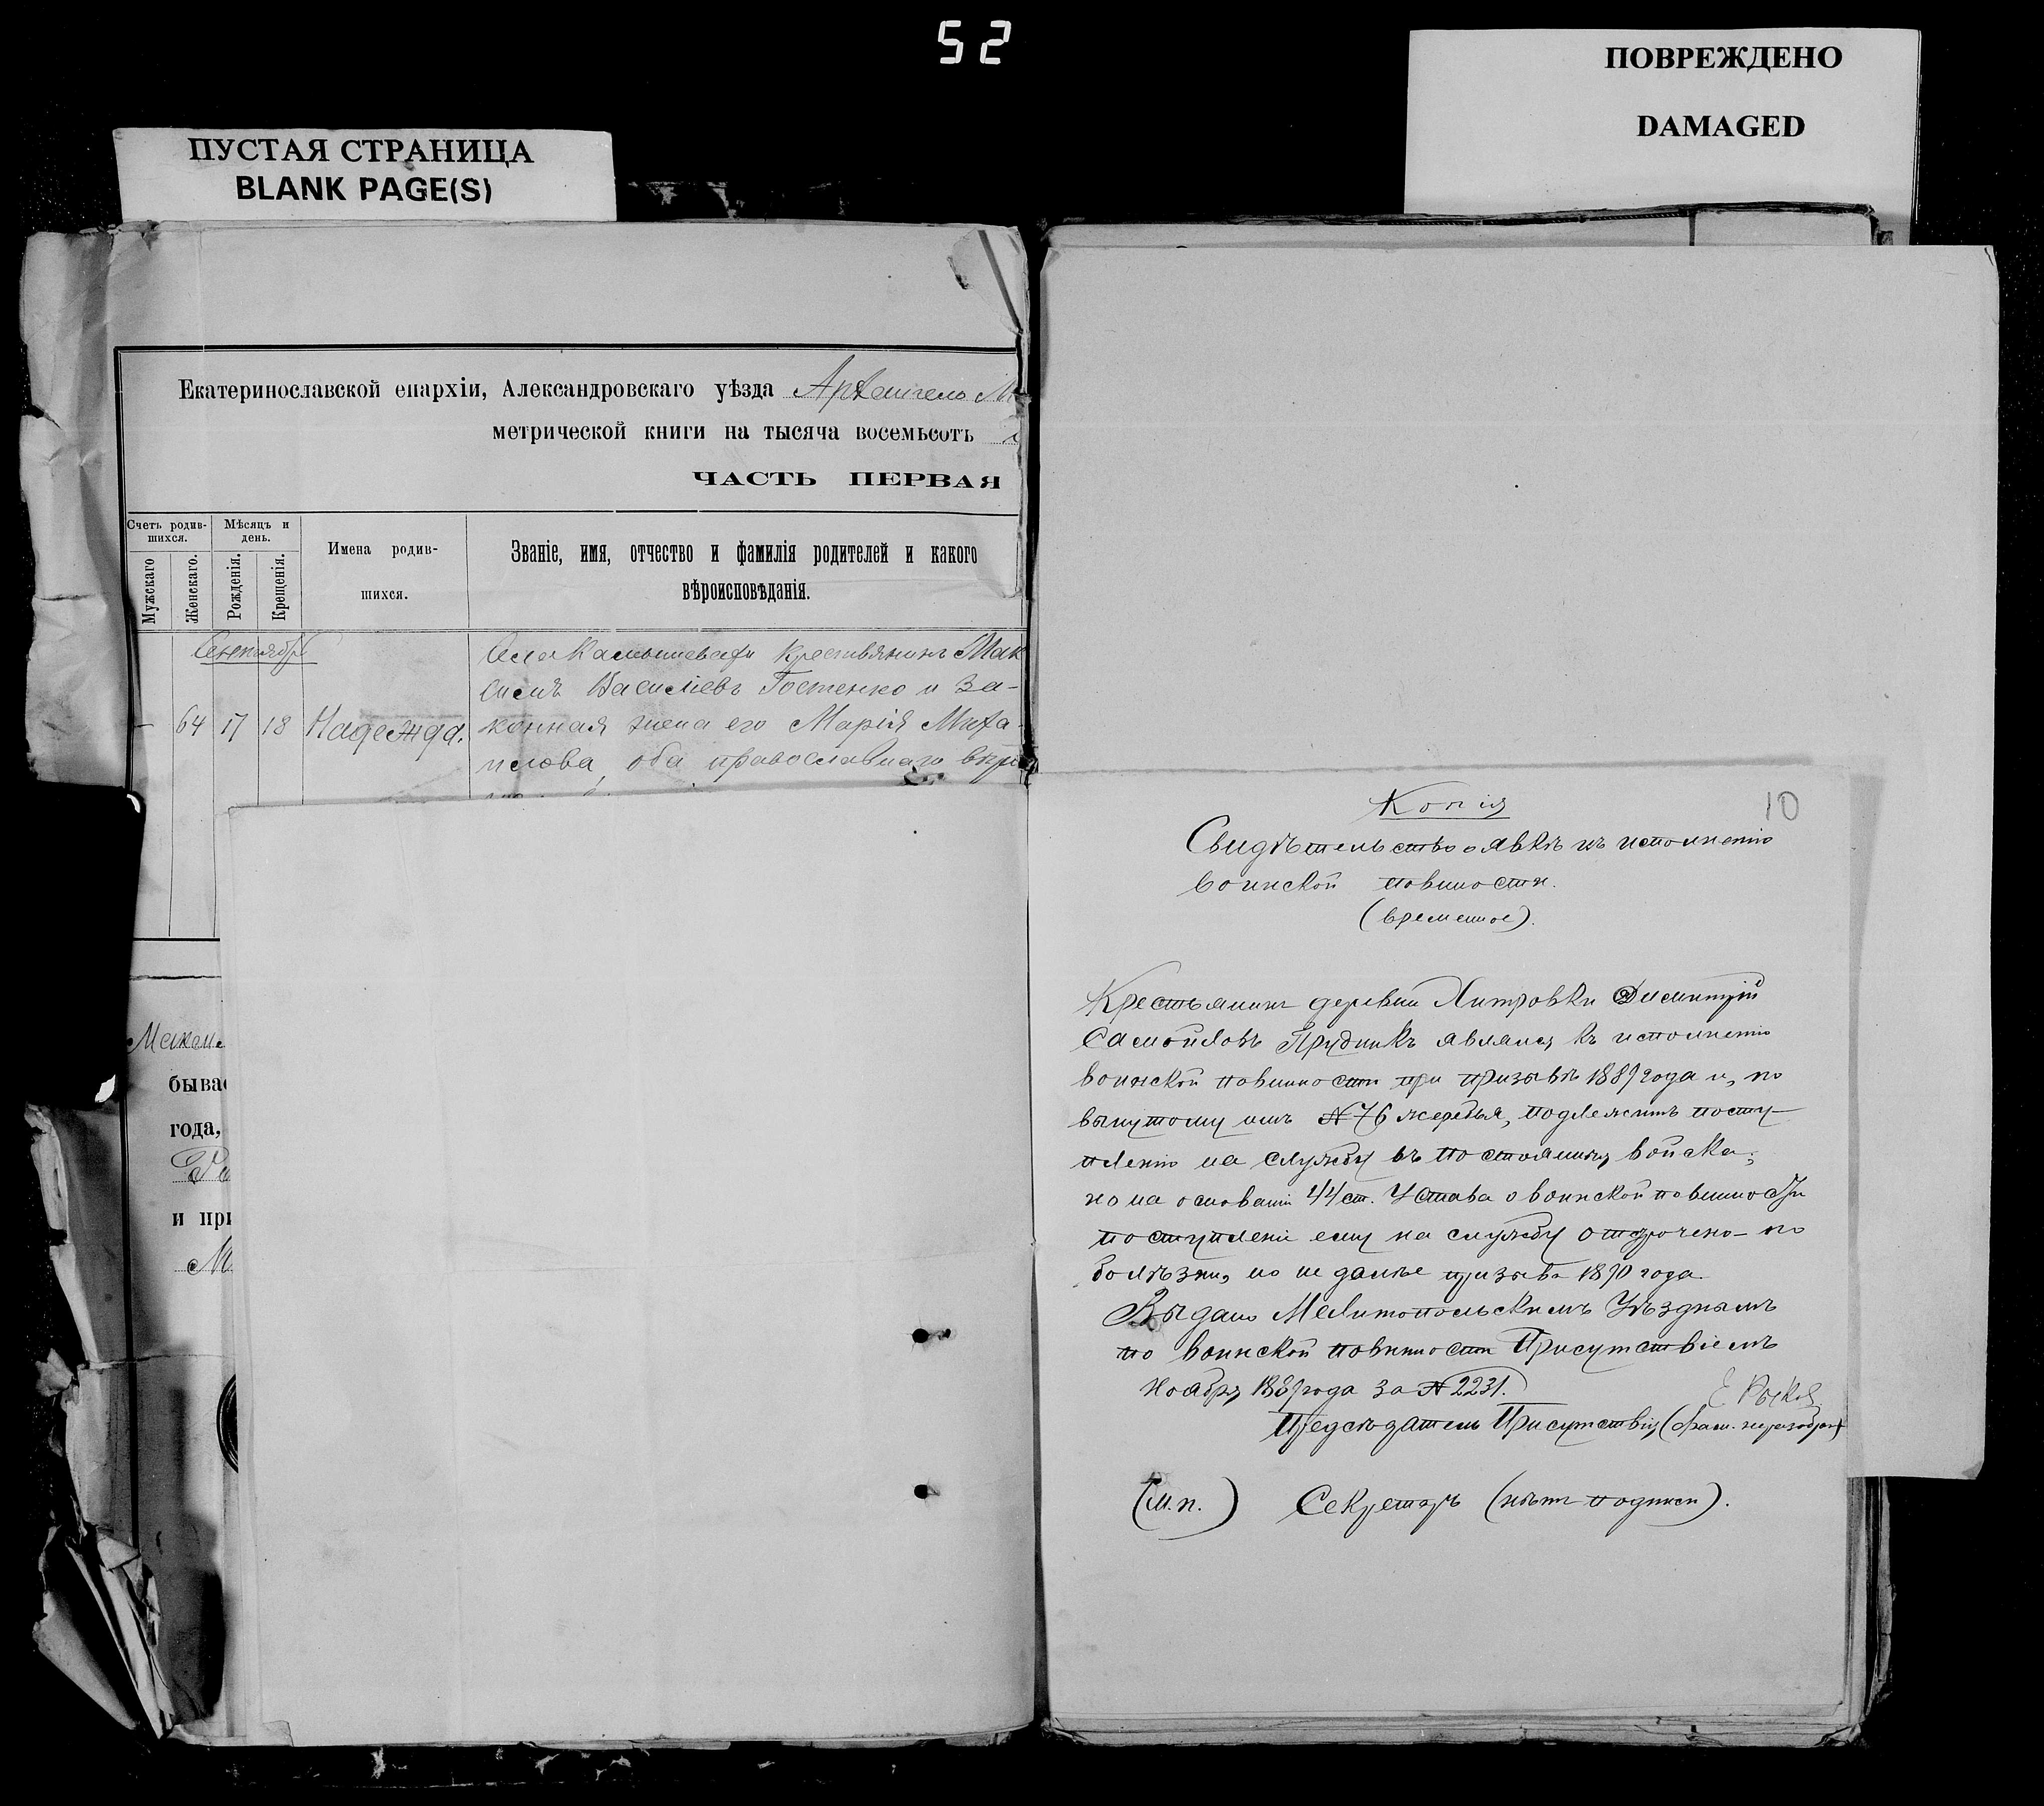 52
ПОВРЕЖДЕНО
DAMAGED
ПУСТАЯ СТРАНИЦА
BLANK PAGE(S)
Екатеринославской епархіи, Александровскаго уѣзда Архангело М
метрической книги на тысяча восемьсотъ
ЧАСТЬ ПЕРВАЯ
Счетъ родив-
шихся.
Мѣсяцъ и
день.
Мужскаго
Женскаго.
Рожденія.
Крещенія.
Имена родив-
шихся.
Званіе, имя, отчество и фамилія родителей и какого
вѣроисповѣданія.
Сентябрь
64 17 18 Надежда.
Села крестьянинъ Мак
симъ Васильевъ Гостенко и за-
конная жена его Марія Миха-
илова, оба православнаго
бывае
года,
и при
М
10
Копія
Свидѣтельство о явкѣ къ исполненію
воинской повинности.
(временное).
Крестьянинъ деревни Хитровки Димитрій
Самойловъ Прудникъ являлся къ исполненію
воинской повинности при призывѣ 1889 года и, по
вынутому имъ № 76 жеребья, подлежитъ посту-
пленію на службу въ постоянныя войска;
но на основаніи 44 ст. Устава о воинской повинности
поступленіе ему на службу отсрочено по
болѣзни, но не далѣе призыва 1890 года.
Выдано Мелитопольскимъ Уѣзднымъ
по воинской повинности Присутствіемъ
Ноября 1889 года за № 2231.
Предсѣдатель Присутствія (фам. неразобран)
(м.п.) Секретарь (нѣтъ подписи).